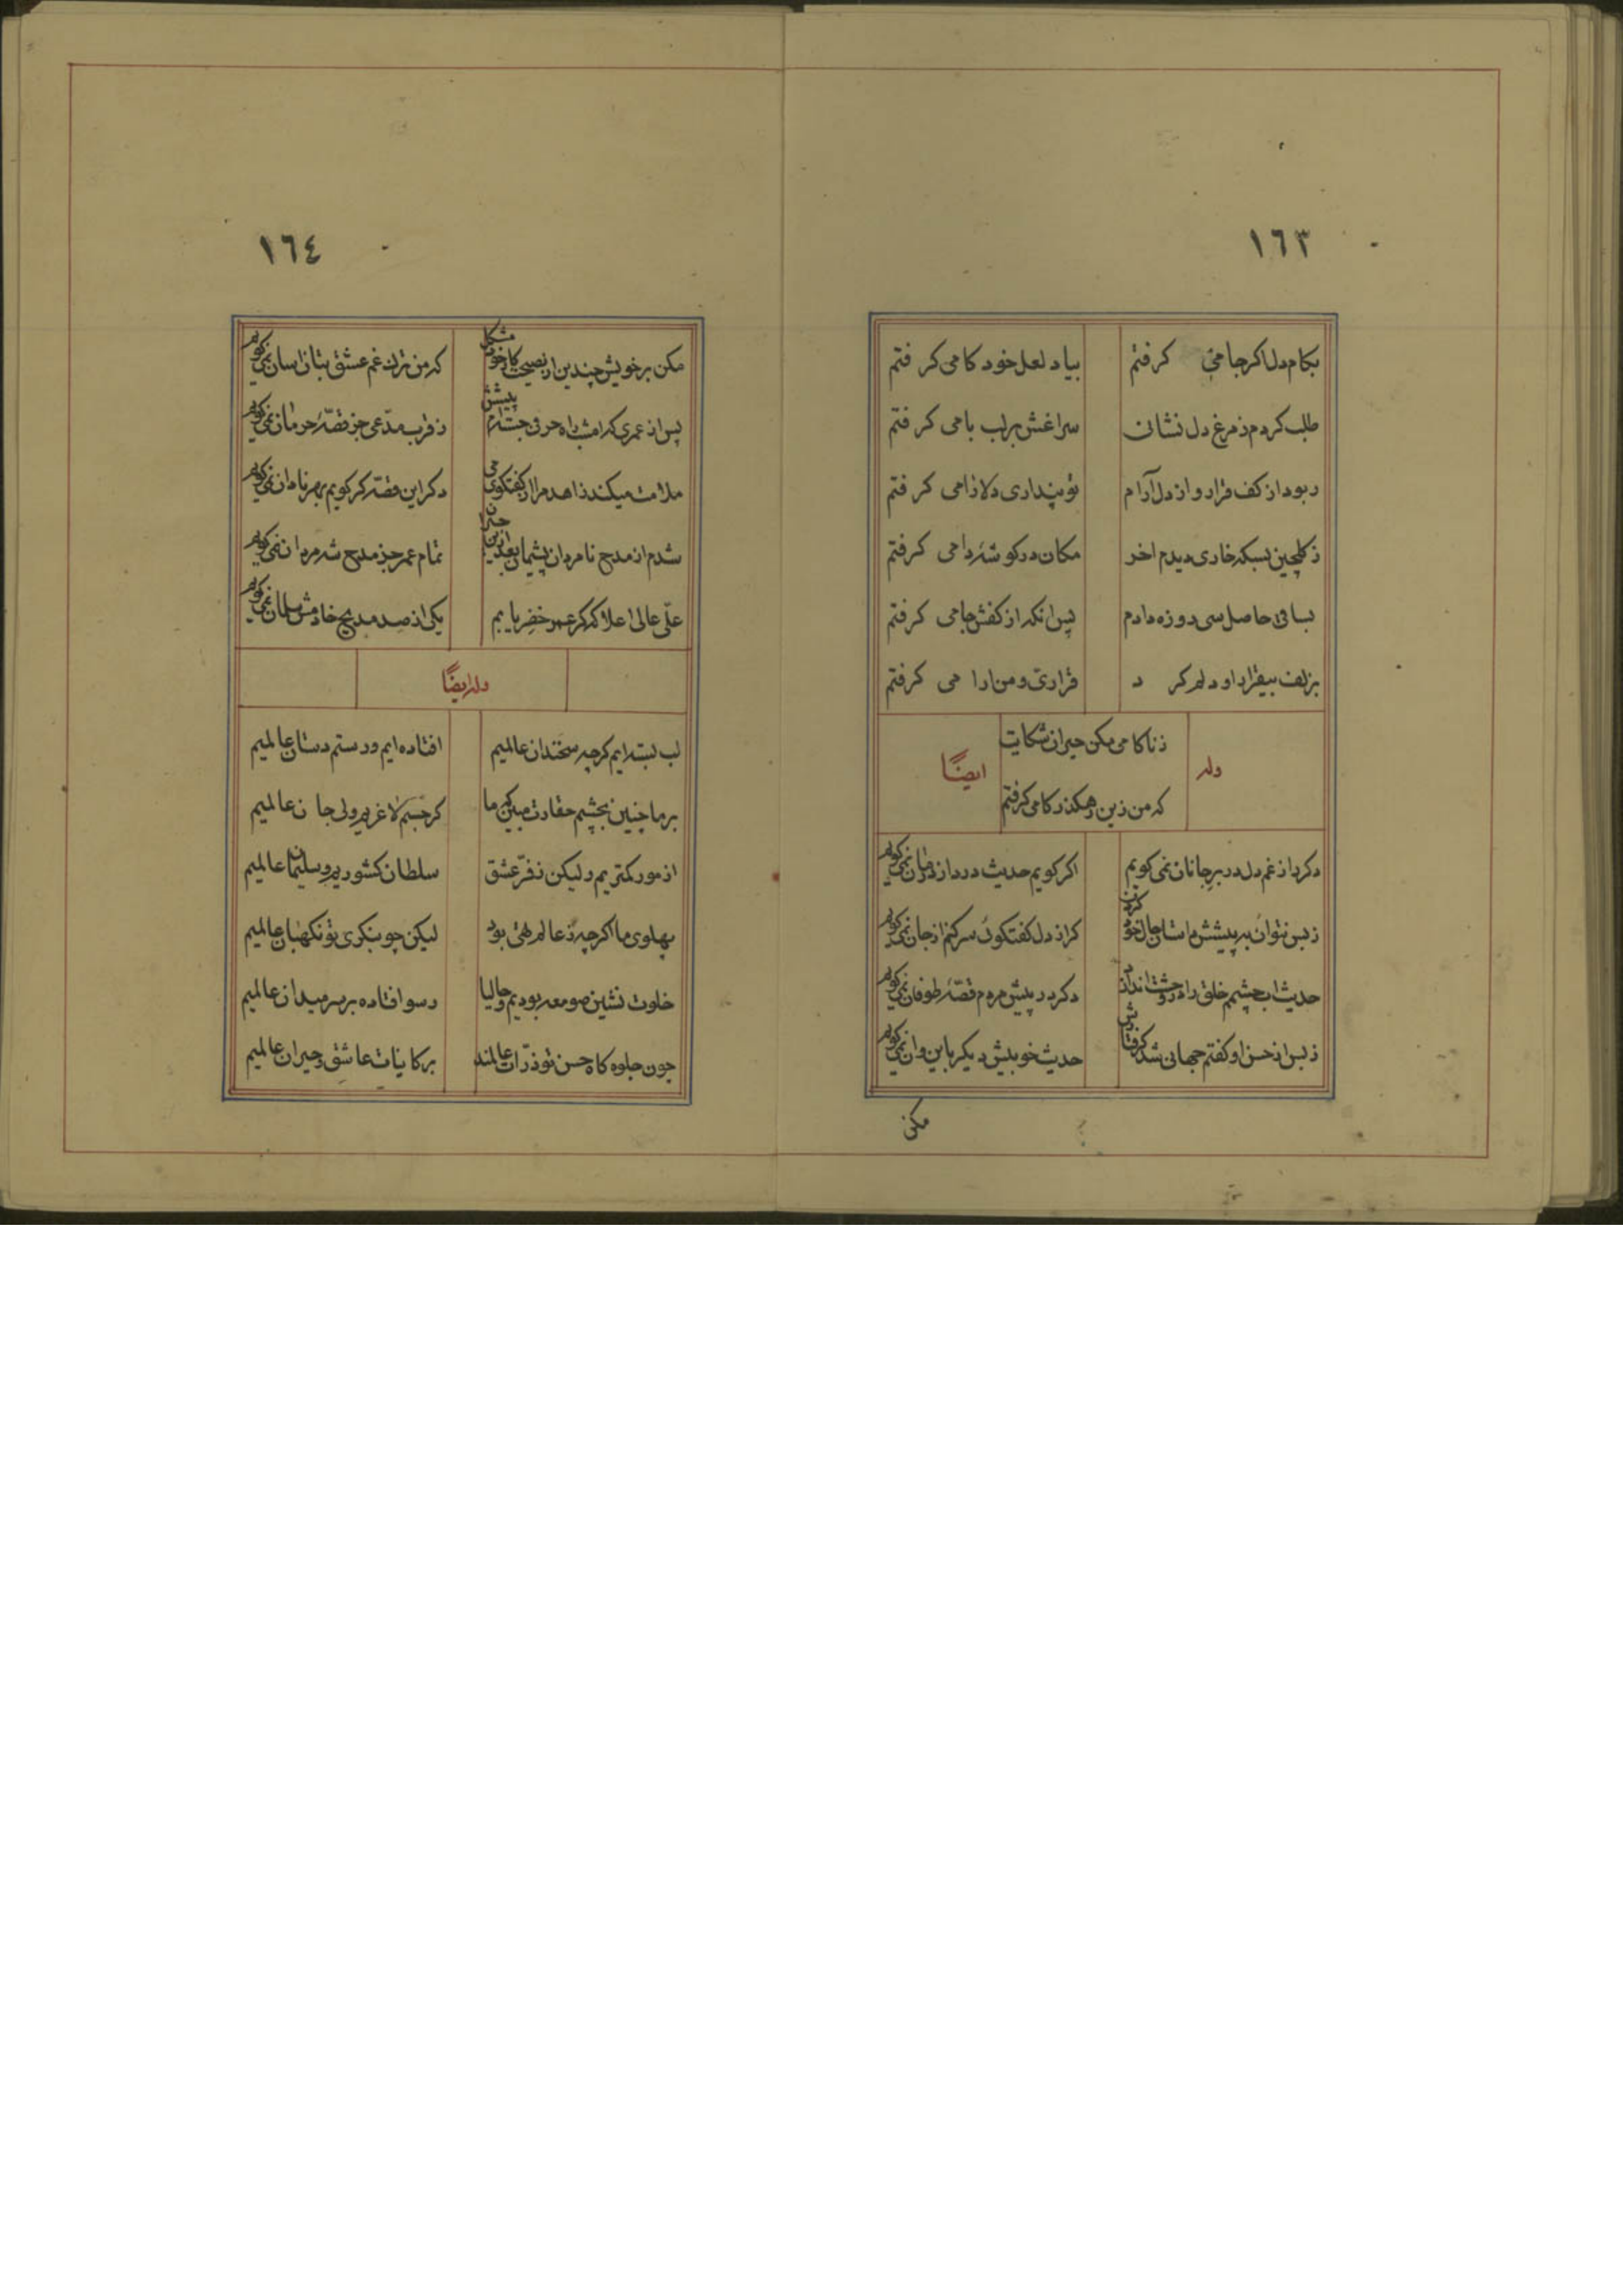 ١٦٣
بکام دل اکر جامی کرفتم
بیاد لعل خود کامی کرفتم
طلب کردم ز مرغ دل نشانی
سراغش بر لب بامی کرفتم
ربود از کف قرار و از دل آرام
تو پنداری دلارامی کرفتم
ز کلچین بسکه خاری دیدم اخر
مکان در کوشهٔ دامی کرفتم
بساقی حاصل سی روزه دادم
پس انکه از کفش جامی کرفتم
بزلف بیقرار او دلم کرد
قراری و من ارامی کرفتم
وله
ز ناکامی مکن حیران شکایت
ایضاً
که من زین رهکذر کامی کرفتم
دکر از غم دل در بر جانان نمی کویم
اکر کویم حدیث درد از درمان نمی کویم
ز بس نتوان به پیشش داستان حال خود کردن
کر از دل کفتکوئی سر کنم از جان نمی کویم
حدیث اب چشمم خلق را در وحشت اندازد
دکر در پیش مردم قصّهٔ طوفان نمی کویم
ز بس از حسن او کفتم جهانی شد کرفتارش
حدیث خوبیش دیکر باین و ان نمی کویم
مکن
١٦٤
مکن بر خویش چندین ای نصیحت کار خود مشکل
که من ترک غم عشق بتان اسان نمی کویم
پس از عمری که امشب راه حرفی جسته‌ام پیشش
ز قرب مدّعی جز قصّهٔ حرمان نمی کویم
ملامت میکند زاهد مرا از کفتکوی می
دکر این قصّه کر کویم بهر نادان نمی کویم
شدم از مدح نامردان پشیمان بعد ازین حیران
تمام عمر جز مدح شه مردان نمی کویم
علّی عالی اعلا که کر عمر خضر یابم
یکی از صد مدیح خادمش سلمان نمی کویم
وله ایضاً
لب بسته ایم کرچه سخندان عالمیم
افتاده ایم و رستم دستان عالمیم
بر ما چنین بچشم حقارت مبین که ما
کر جسم لاغریم ولی جان عالمیم
از مور کمتریم ولیکن ز فرّ عشق
سلطان کشوریم و سلیمان عالمیم
پهلوی ما اکرچه ز عالم تهی بود
لیکن چو بنکری تو نکهبان عالمیم
خلوت نشین صومعه بودیم و حالیا
رسوا فتاده بر سر میدان عالمیم
چون جلوه کاه حسن تو ذرّات عالمند
بر کاینات عاشق و حیران عالمیم